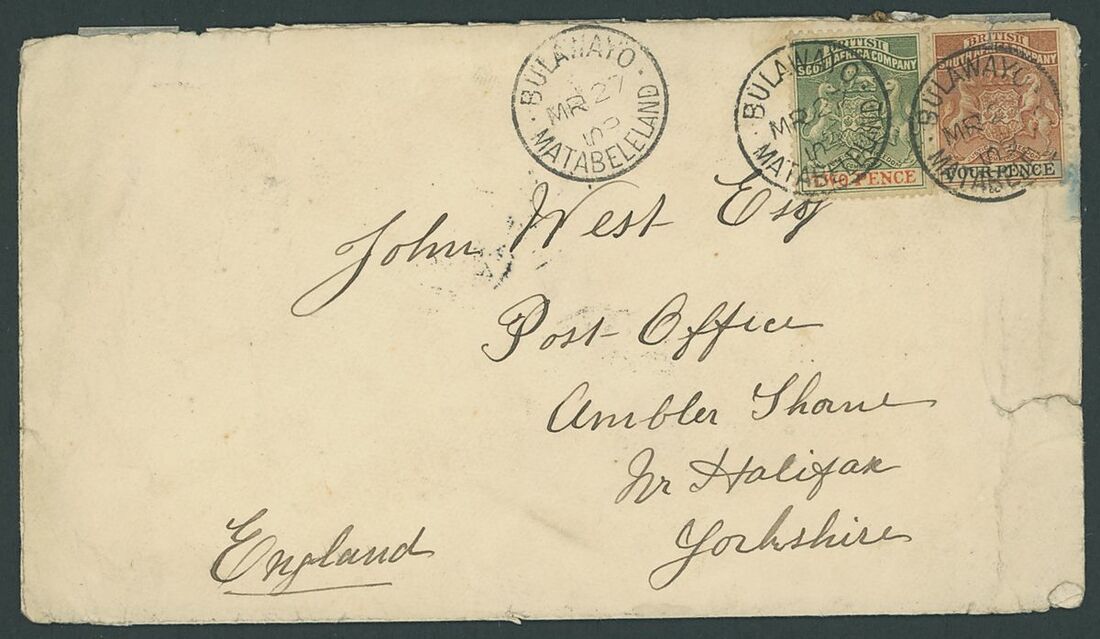 BULAWAYO
MR 27
MATABELELAND
BULAWAYO
MR 2
MATABELELAND
BRITISH
SOUTH AFRICA COMPANY
TWO PENCE
BULAWAYO
MR 2
BRITISH
SOUTH AFRICA COMPANY
FOUR PENCE
John West Esq
Post Office
Ambler Thorne
Nr Halifax
Yorkshire
England